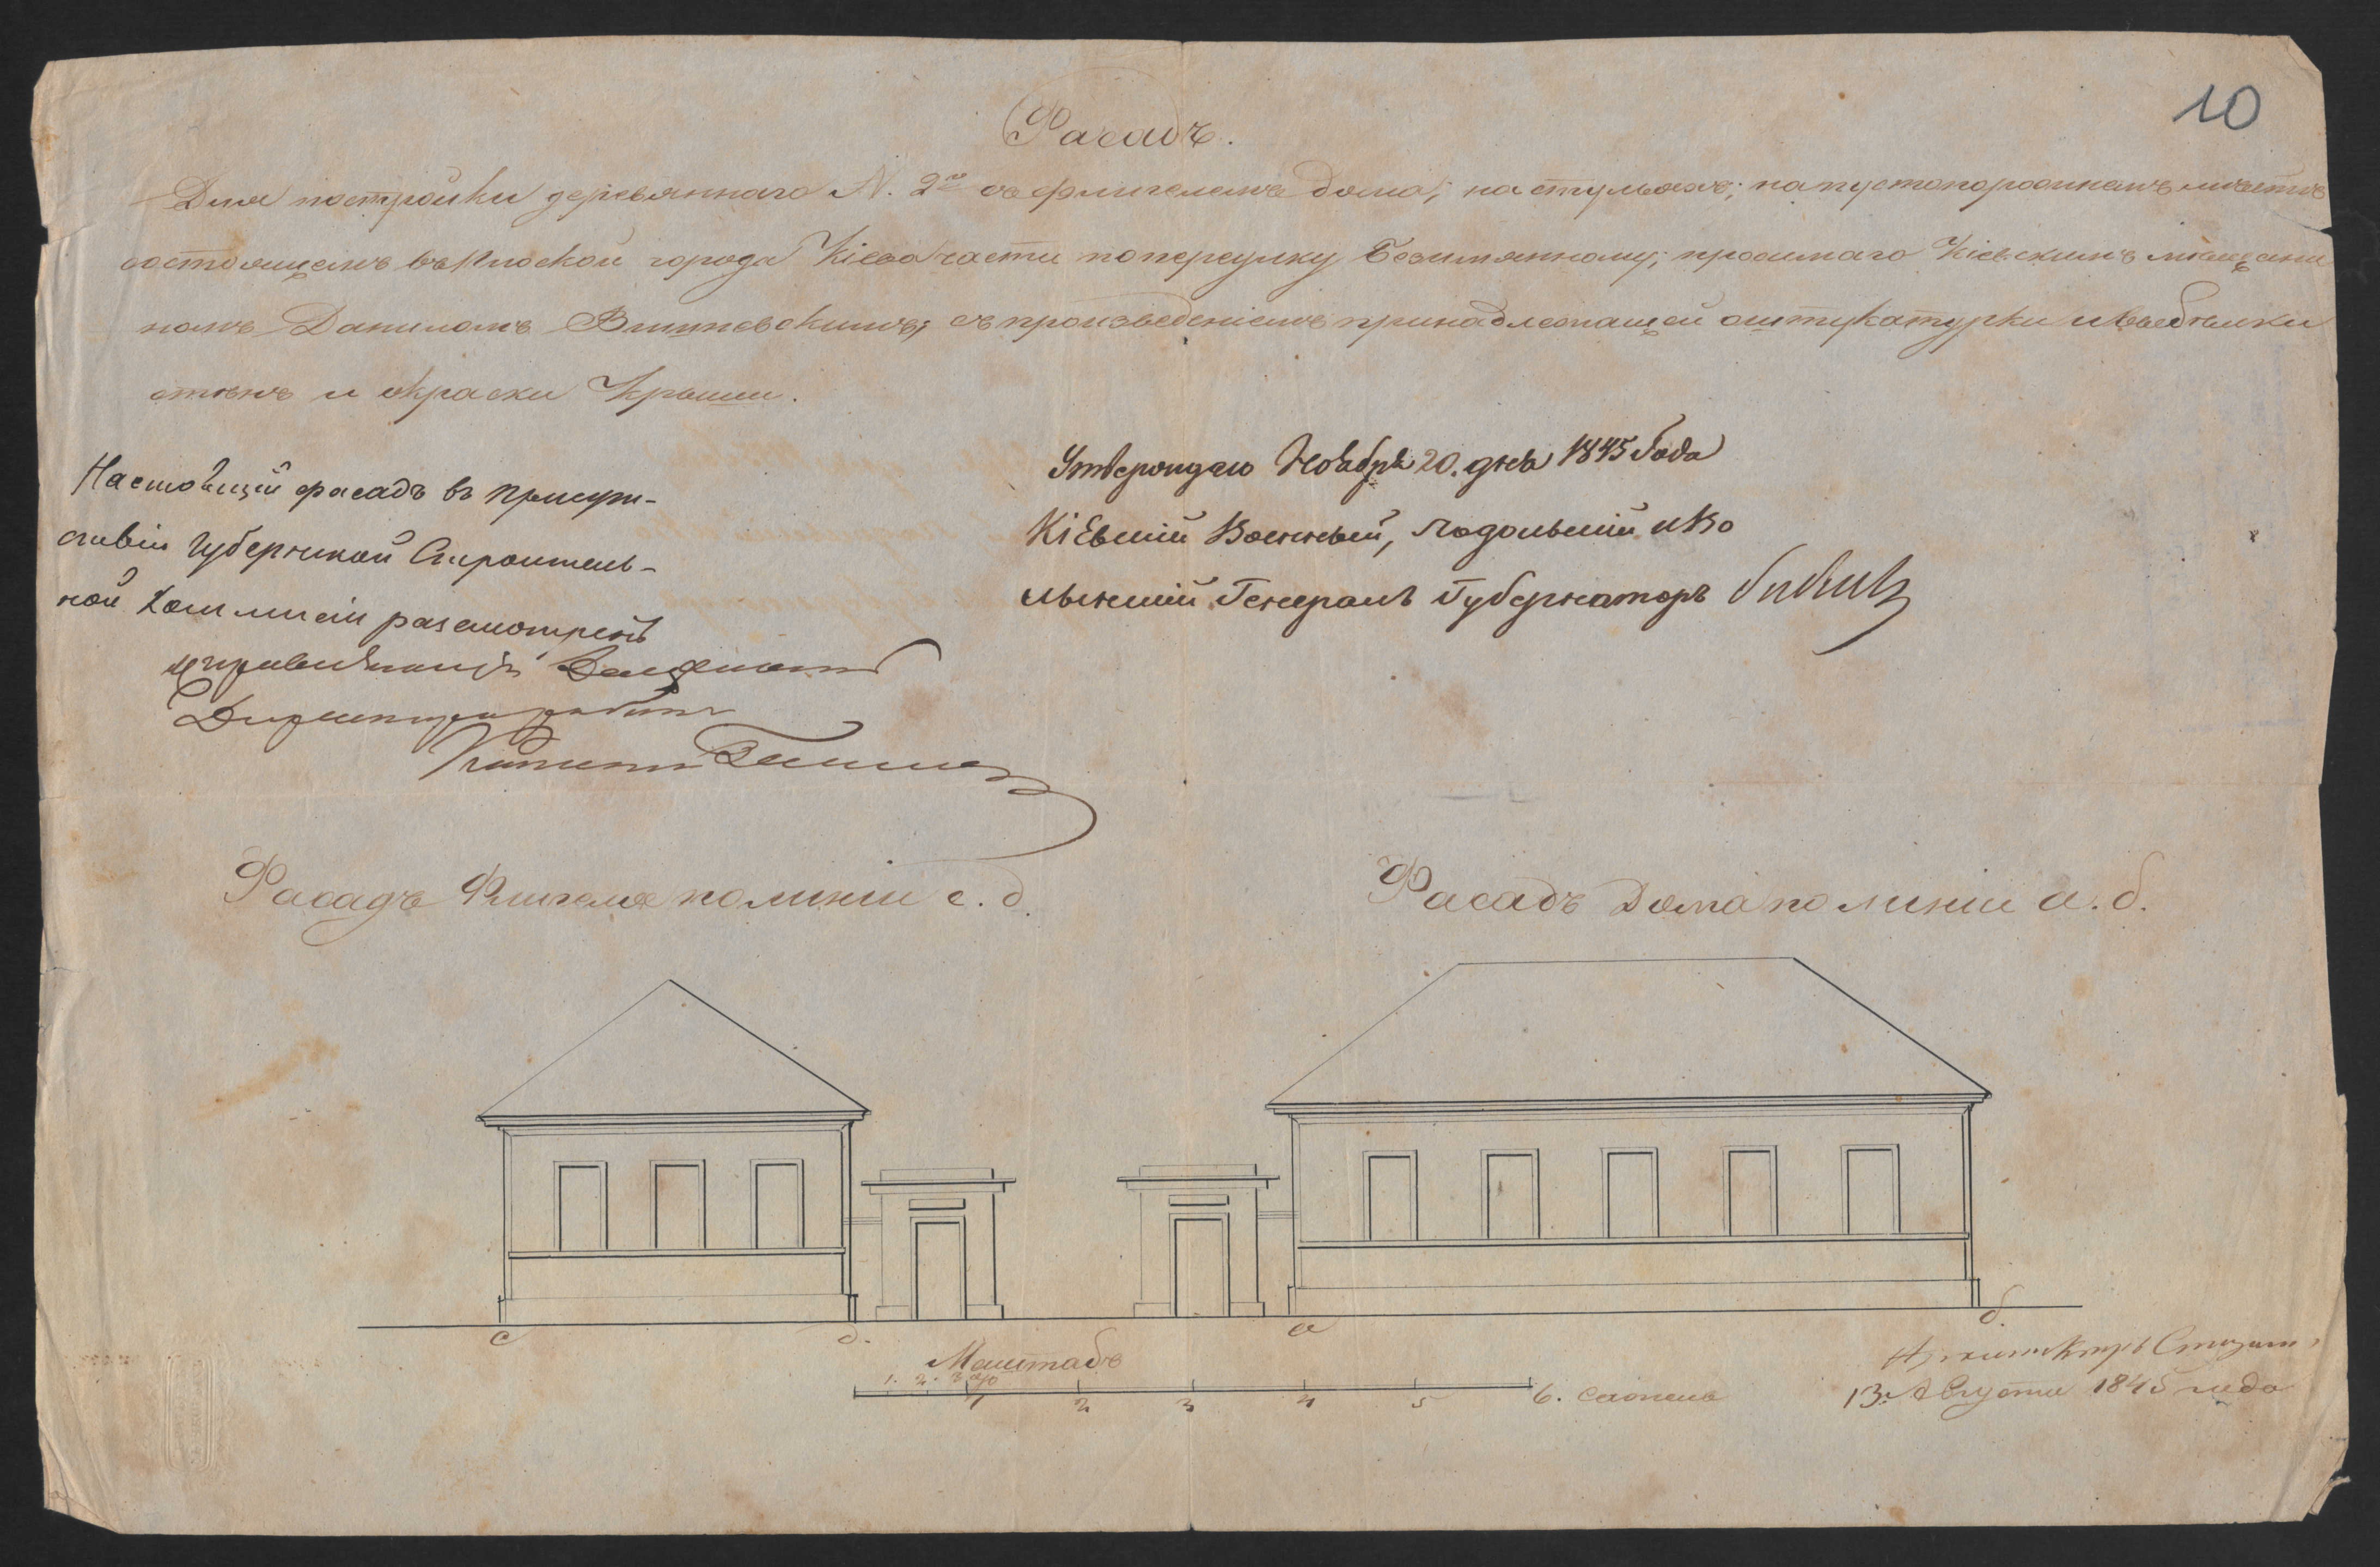 10
Фасадъ.
Для постройки деревяннаго N. 2го съ флигелемъ дома; на стульяхъ; на пустопорожнемъ мѣстѣ
состоящемъ въ Плоской города Кіева части по переулку Безимянному; просимаго Кіевскимъ мѣщани
номъ Даниломъ Вишневскимъ; съ произведеніемъ принадлежащей оштукатурки и выбѣлки
стѣнъ и окраски Крыши.
Настоящій фасадъ въ присут-
ствіи Губернской Строитель-
ной Коммисіи разсмотренъ
Утверждаю Ноября 20. дня 1845 Года
Кіевскій Военный, Подольскій и Во
лынскій Генералъ Губернаторъ Бибиковъ
Фасадъ Флигеля по линіи с. д.
Фасадъ Дома по линіи а. б.
с д. а б.
Маштабъ
1. 2. 3
1 2 3 4 5 6. сажень
Архитекторъ
13. Августа 1845 года